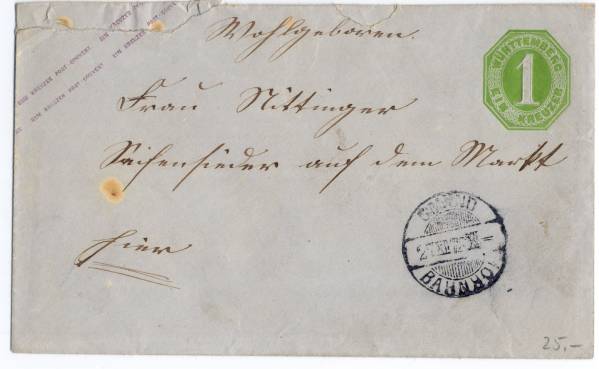 EIN KREUZER POST COUVERT EIN KREUZER POST COUVERT
EIN KREUZER POST COUVERT EIN KREUZER POST COUVERT
WÜRTTEMBERG
1
EIN KREUZER
Wohlgeboren.
Frau Nittinger
Seifensieder auf dem Markt
hier
GMÜND
BAHNHOF
25.-